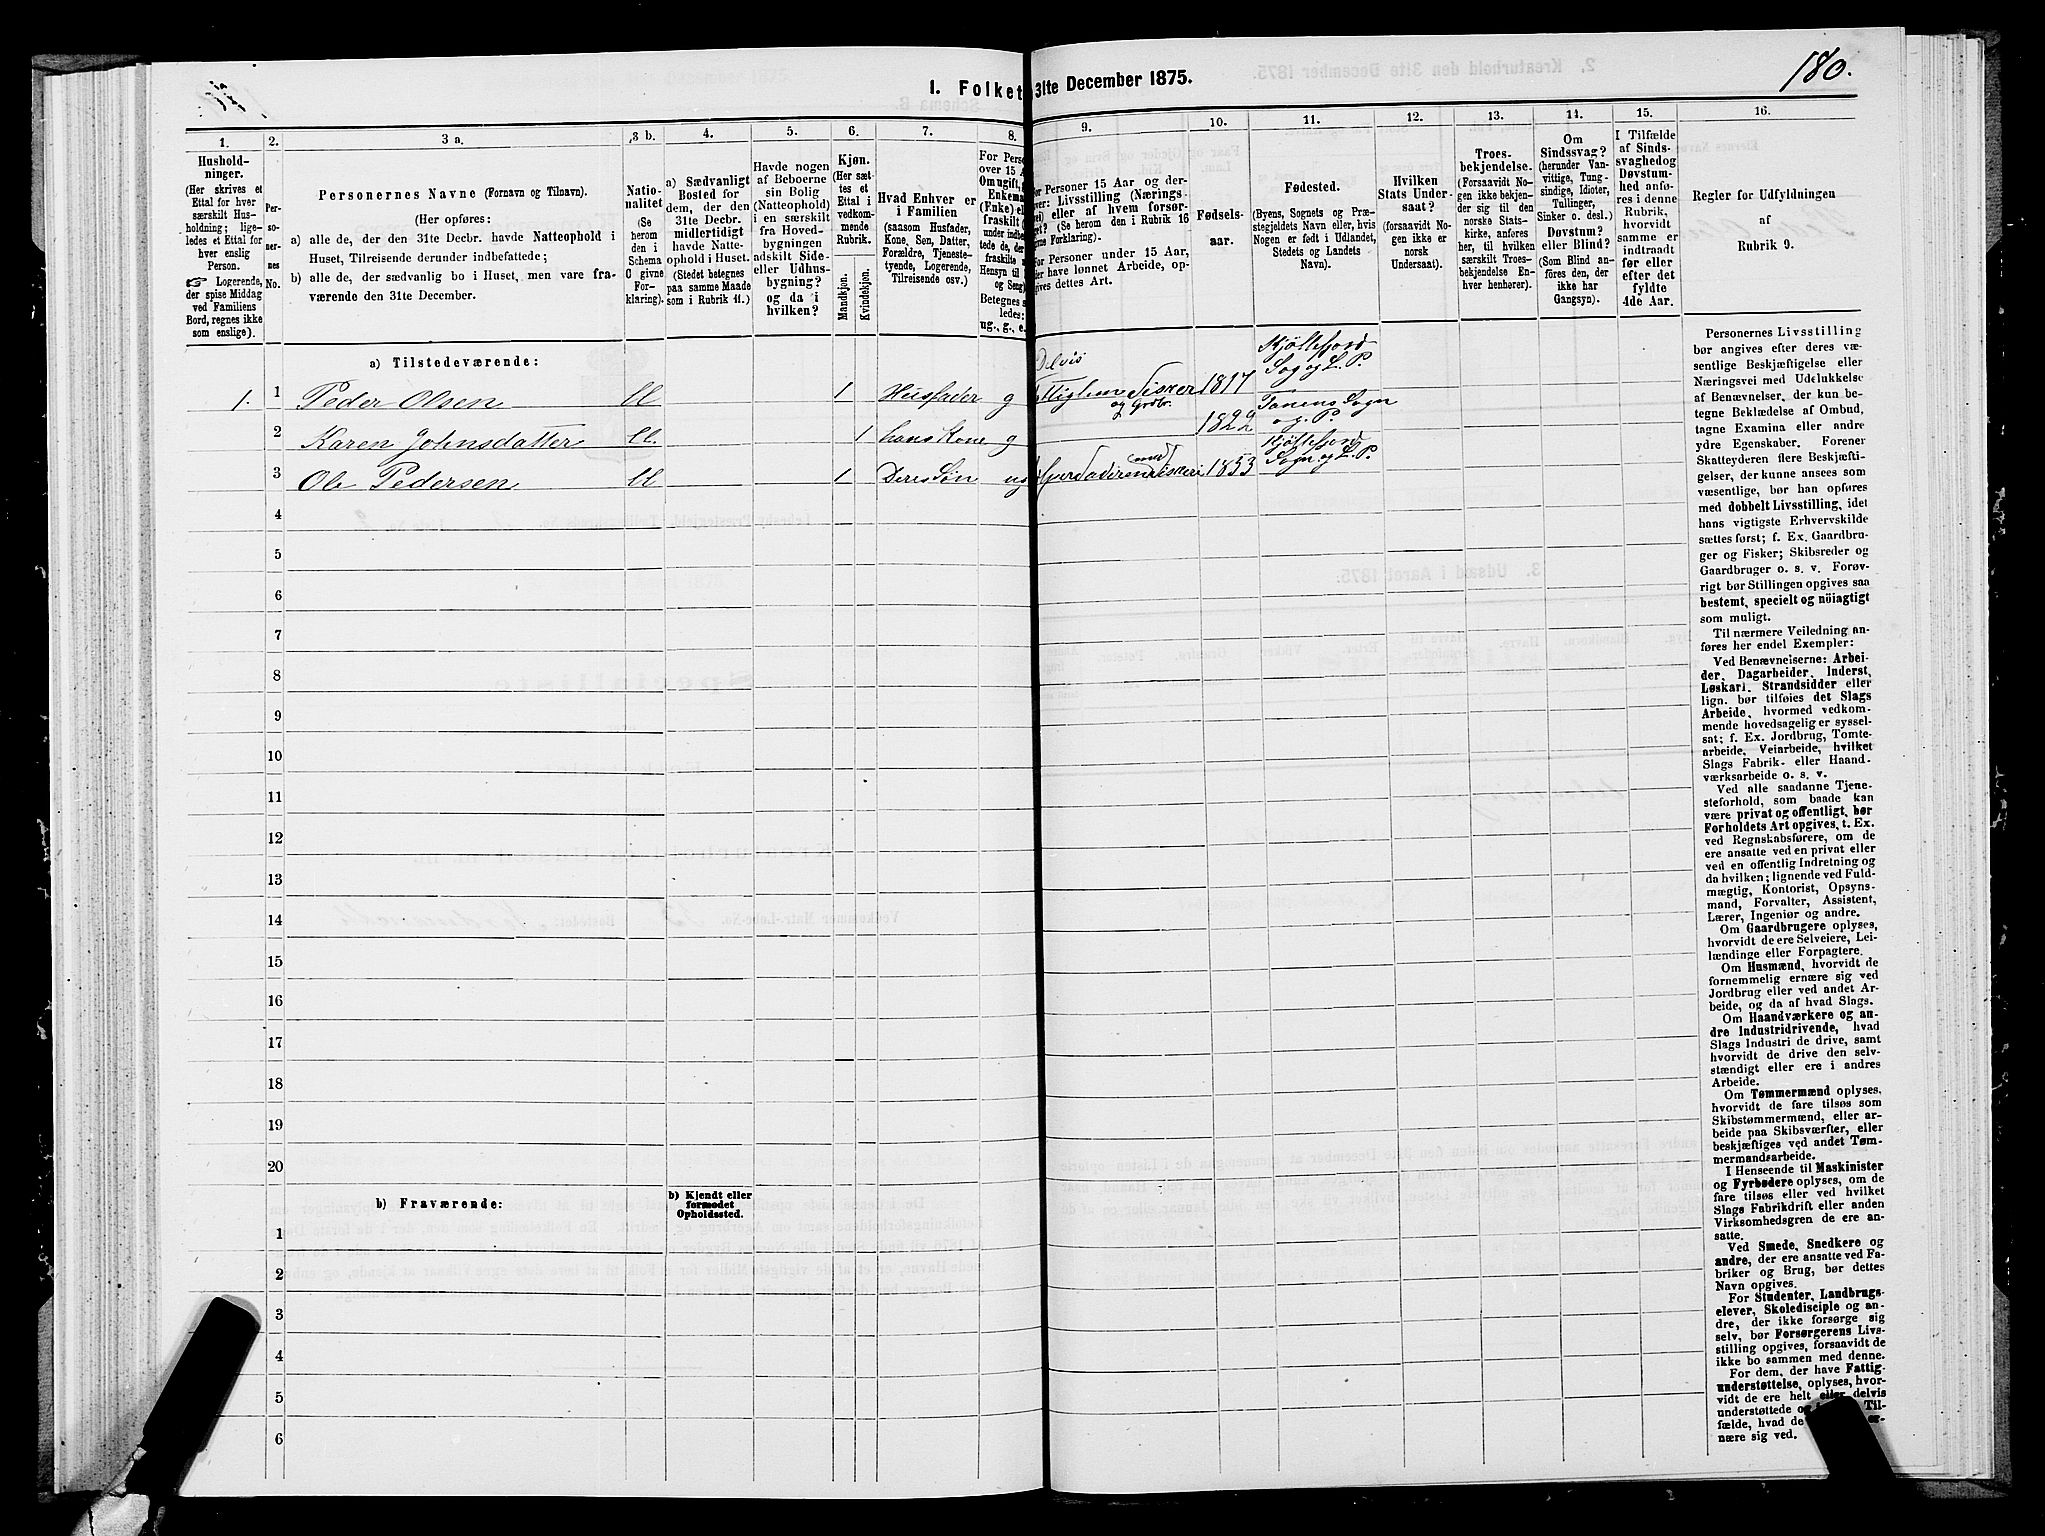 180.
I. Folket 31te December 1875.
1. 2. 3 a. 3 b. 4. 5. 6. 7. 8. 9. 10. 11. 12. 13. 14. 15. 16.
Husholdninger.
(Her skrives et
Ettal for hver
særskilt Husholdning;
ligeledes et Ettal for
hver enslig
Person.
☞ Logerende,
der spise Middag
ved Familiens
Bord, regnes ikke
som enslige).
Personernes
No.
Personernes Navne (Fornavn og Tilnavn).
(Her opføres:
a) alle de, der den 31te Decbr. havde Natteophold i
Huset, Tilreisende derunder indbefattede;
b) alle de, der sædvanlig bo i Huset, men vare fraværende den 31te December.
Nationalitet
(Se
herom
den i
Schema
C givne
Forklaring).
a) Sædvanligt
Bosted for
dem, der den
31te Decbr.
midlertidigt
havde Natteophold i Huset.
(Stedet betegnes
paa samme Maade
som i Rubrik 11.)
Havde nogen
af Beboerne
sin Bolig
(Natteophold)
i en særskilt
fra Hovedbygningen
adskilt Side- eller Udhusbygning?
og da i
hvilken?
Kjøn.
(Her sættes et
Ettal i
vedkommende
Rubrik.
Mandkjøn.
Kvindekjøn.
Hvad Enhver er
i Familien
(saasom Husfader,
Kone, Søn, Datter,
Forældre, Tjenestetyende, Logerende,
Tilreisende osv.)
For Perso
over 15 A
Om ugift,
Enkema
(Enke) el
fraskilt
Betegnes s
ledes:
ug., g., e.
For Personer 15 Aar og derover: Livsstilling (Næringsvei) eller af hvem forsørget? (Se herom den i Rubrik 16
givne Forklaring).
For Personer under 15 Aar,
der have lønnet Arbeide, opgives dettes Art.
Fødselsaar.
Fødested.
(Byens, Sognets og Præstegjeldets Navn eller, hvis
Nogen er født i Udlandet,
Stedets og Landets
Navn).
Hvilken
Stats Undersaat?
(forsaavidt Nogen ikke er
norsk
Undersaat).
Troesbekjendelse.
(Forsaavidt Nogen ikke bekjender sig til den
norske Statskirke, anføres
her, til hvilken
særskilt Troesbekjendelse Enhver henhører).
Om
Sindssvag?
(herunder Vanvittige, Tungsindige, Idioter,
Tullinger,
Sinker o. desl.)
Døvstum?
eller Blind?
(Som Blind anføres den, der
ikke har
Gangsyn).
I Tilfælde
af Sindssvaghed og
Døvstumhed anføres i denne
Rubrik,
hvorvidt
samme er
indtraadt
før eller
efter det
fyldte
4de Aar.
Regler for Udfyldningen
af
Rubrik 9.
a) Tilstedeværende:
1. 1 Peder Olsen 1 Husfader g Fisker 1817 Kjöllefjord Sog og L. P.
2 Karen Johnsdatter 1 hans Kone g 1822 Tanens Sogn og P.
3 Ole Pedersen 1 Deres Søn ug 1853 Kjöllefjord Sogn og L. P.
4
5
6
7
8
9
10
11
12
13
14
15
16
17
18
19
20
b) Fraværende:
b) Kjendt eller
formodet
Opholdssted.
1
2
3
4
5
6
Personernes Livsstilling
bør angives efter deres væsentlige Beskjæftigelse eller
Næringsvei med Udelukkelse
af Benævnelser, der kun betegne Beklædelse af Ombud,
tagne Examina eller andre
ydre Egenskaber. Forener
Skatteyderen flere Beskjæftigelser, der kunne ansees som
væsentlige, bør han opføres
med dobbelt Livsstilling, idet
hans vigtigste Erhvervskilde
sættes først; f. Ex. Gaardbruger og Fisker; Skibsreder og
Gaardbruger o. s. v. Forøvrigt bør Stillingen opgives saa
bestemt, specielt og nöiagtigt
som muligt.
Til nærmere Veiledning anføres her endel Exempler:
Ved Benævnelserne: Arbeider, Dagarbeider, Inderst,
Løskarl, Strandsidder eller
lign. bør tilføies det Slags
Arbeide, hvormed vedkommende hovedsagelig er sysselsat; f. Ex. Jordbrug, Tomtearbeide, Veiarbeide, hvilket
Slags Fabrik- eller Haandværksarbeide o. s. v.
Ved alle saadanne Tjenesteforhold, som baade kan
være privat og offentligt, bør
Forholdets Art opgives, t. Ex.
ved Regnskabsførere, om de
ere ansatte ved en privat eller
ved en offentlig Indretning og
da hvilken; lignende ved Fuldmægtig, Kontorist, Opsynsmand, Forvalter, Assistent,
Lærer, Ingeniør og andre.
Om Gaardbrugere oplyses,
hvorvidt de ere Selveiere, Leilændinge eller Forpagtere.
Om Husmænd, hvorvidt de
fornemmelig ernære sig ved
Jordbrug eller ved andet Arbeide, og da af hvad Slags.
Om Haandværkere og andre Industridrivende, hvad
Slags Industri de drive, samt
hvorvidt de drive den selvstændigt eller ere i andres
Arbeide.
Om Tømmermænd oplyses,
hvorvidt de fare tilsøs som
Skibstømmermænd, eller arbeide paa Skibsværfter, eller
beskjæftiges ved andet Tømmermandsarbeide.
I Henseende til Maskinister
og Fyrbødere oplyses, om de
fare tilsøs eller ved hvilket
Slags Fabrikdrift eller anden
Virksomhedsgren de ere ansatte.
Ved Smede, Snedkere og
andre, der ere ansatte ved Fabriker og Brug, bør dettes
Navn opgives.
For Studenter, Landbrugselever, Skoledisciple og andre, der ikke forsørge sig
selv, bør Forsørgerens Livsstilling opgives, forsaavidt de
ikke bo sammen med denne.
For dem, der have Fattigunderstøttelse, oplyses, hvorvidt de ere helt eller delvis
understøttede og Tilfælde, hvad de ernære sig ved.